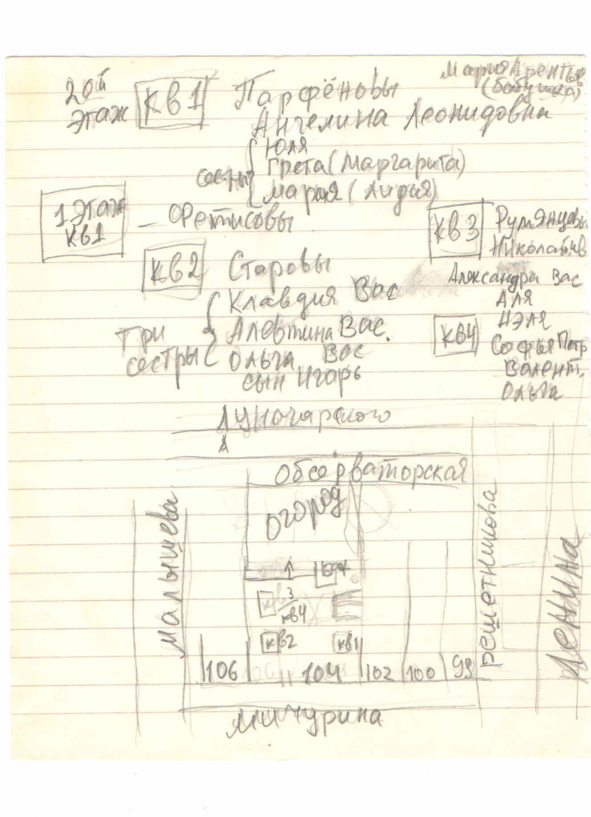 2ой
этаж
кв1
Парфёновы
Мария
(бабушка)
Ангелина Леонидовна
сестры
Юля
Грета (Маргарита)
Мария (Лидия)
1 этаж
кв1
– Фетисовы
кв3
Румянцевы
кв2
Старовы
Александра Вас
Клавдия Вас
Аля
Нэля
три
сестры
Алевтина Вас.
кв4
Софья Петр
Ольга Вас
Валент.
сын Игорь
Ольга
Луночарского
Обсерваторская
огород
Малышева
Решетникова
Ленина
кв3
кв4
кв2
кв1
106
104
102
100
98
Мичурина